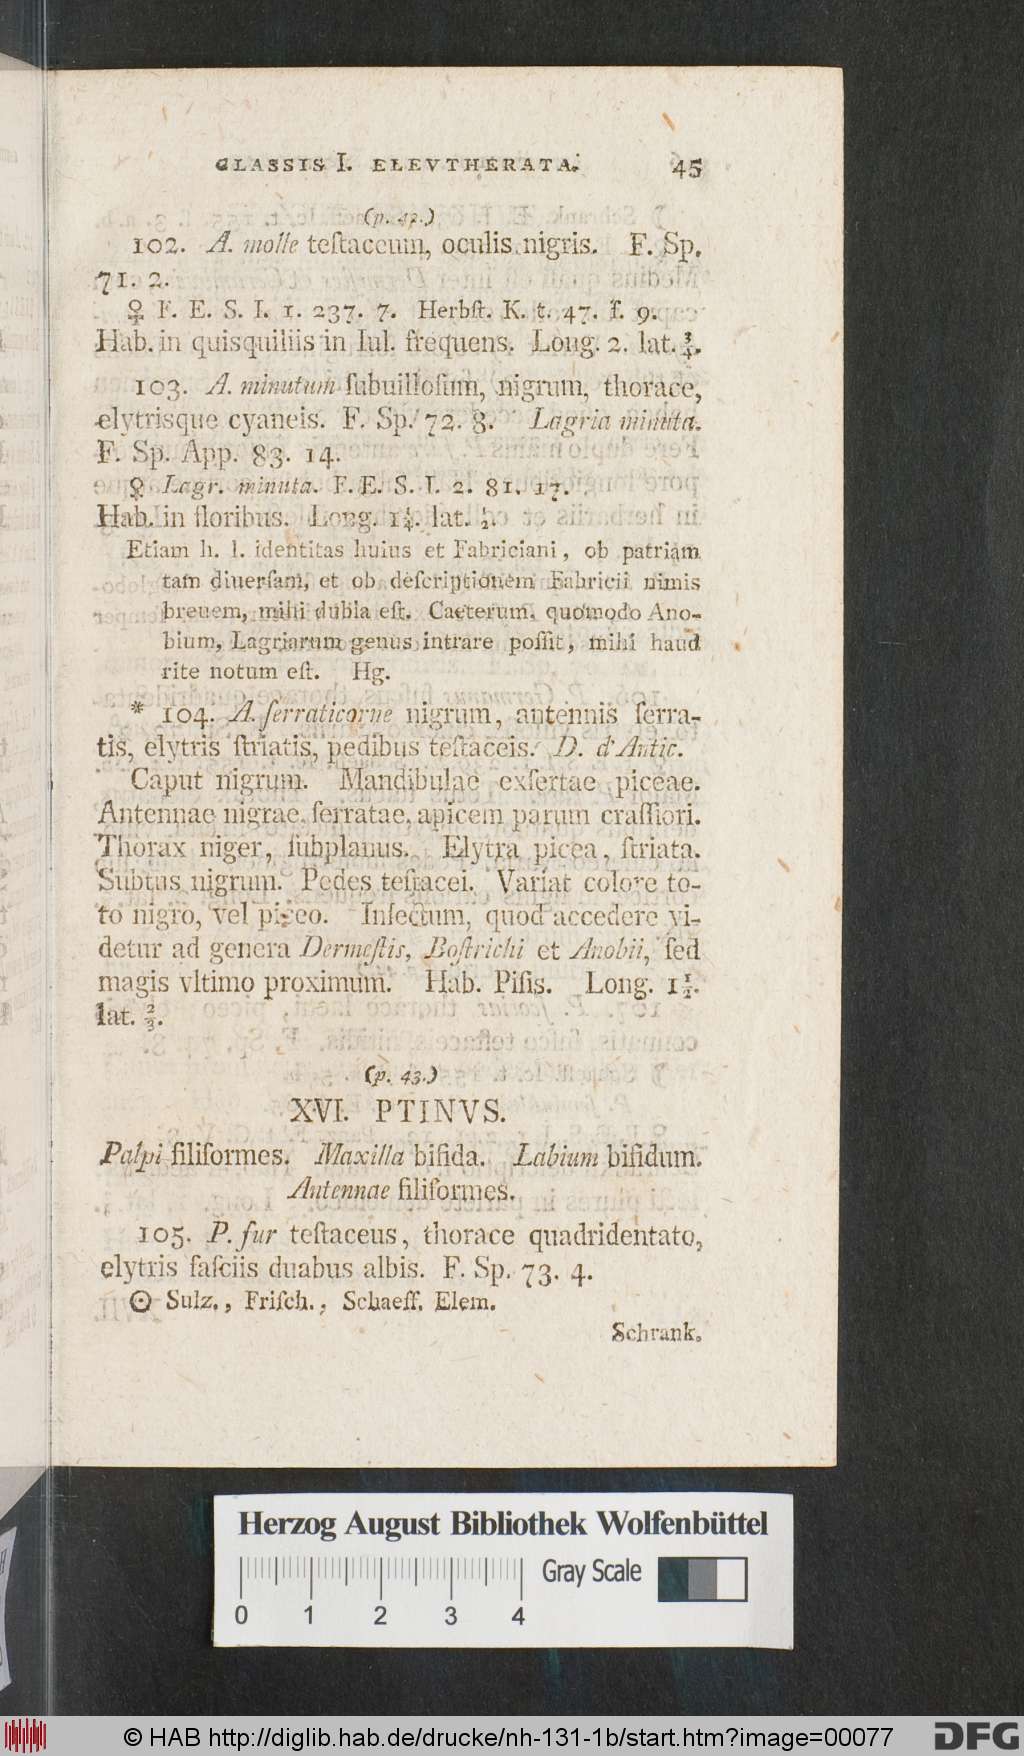 CLASSIS I. ELEVTHERATA. 45
(p. 42.)
102. A. molle teſtaceum, oculis nigris. F. Sp.
71. 2.
♀ F. E. S. I. 1. 237. 7. Herbſt. K. t. 47. f. 9.
Hab. in quisquiliis in Iul. frequens. Long. 2. lat. ¾.
103. A. minutum ſubuilloſum, nigrum, thorace,
elytrisque cyaneis. F. Sp. 72. 8. Lagria minuta.
F. Sp. App. 83. 14.
♀ Lagr. minuta. F. E. S. I. 2. 81. 17.
Hab. in floribus. Long. 1¼. lat. ½.
Etiam h. l. identitas huius et Fabriciani, ob patriam
tam diuerſam, et ob deſcriptionem Fabricii nimis
breuem, mihi dubia eſt. Caeterum, quomodo Ano-
bium, Lagriarum genus intrare poſſit, mihi haud
rite notum eſt. Hg.
* 104. A. ſerraticorne nigrum, antennis ſerra-
tis, elytris ſtriatis, pedibus teſtaceis. D. d'Antic.
Caput nigrum. Mandibulae exſertae piceae.
Antennae nigrae, ſerratae, apicem parum craſſiori.
Thorax niger, ſubplanus. Elytra picea, ſtriata.
Subtus nigrum. Pedes teſtacei. Variat colore to-
to nigro, vel piceo. Inſectum, quod accedere vi-
detur ad genera Dermeſtis, Boſtrichi et Anobii, ſed
magis vltimo proximum. Hab. Piſis. Long. 1½.
lat. ⅔.
(p. 43.)
XVI. PTINVS.
Palpi filiformes. Maxilla bifida. Labium bifidum.
Antennae filiformes.
105. P. fur teſtaceus, thorace quadridentato,
elytris faſciis duabus albis. F. Sp. 73. 4.
☉ Sulz., Friſch., Schaeff. Elem.
Schrank.
Herzog August Bibliothek Wolfenbüttel
Gray Scale
0 1 2 3 4
© HAB http://diglib.hab.de/drucke/nh-131-1b/start.htm?image=00077
DFG